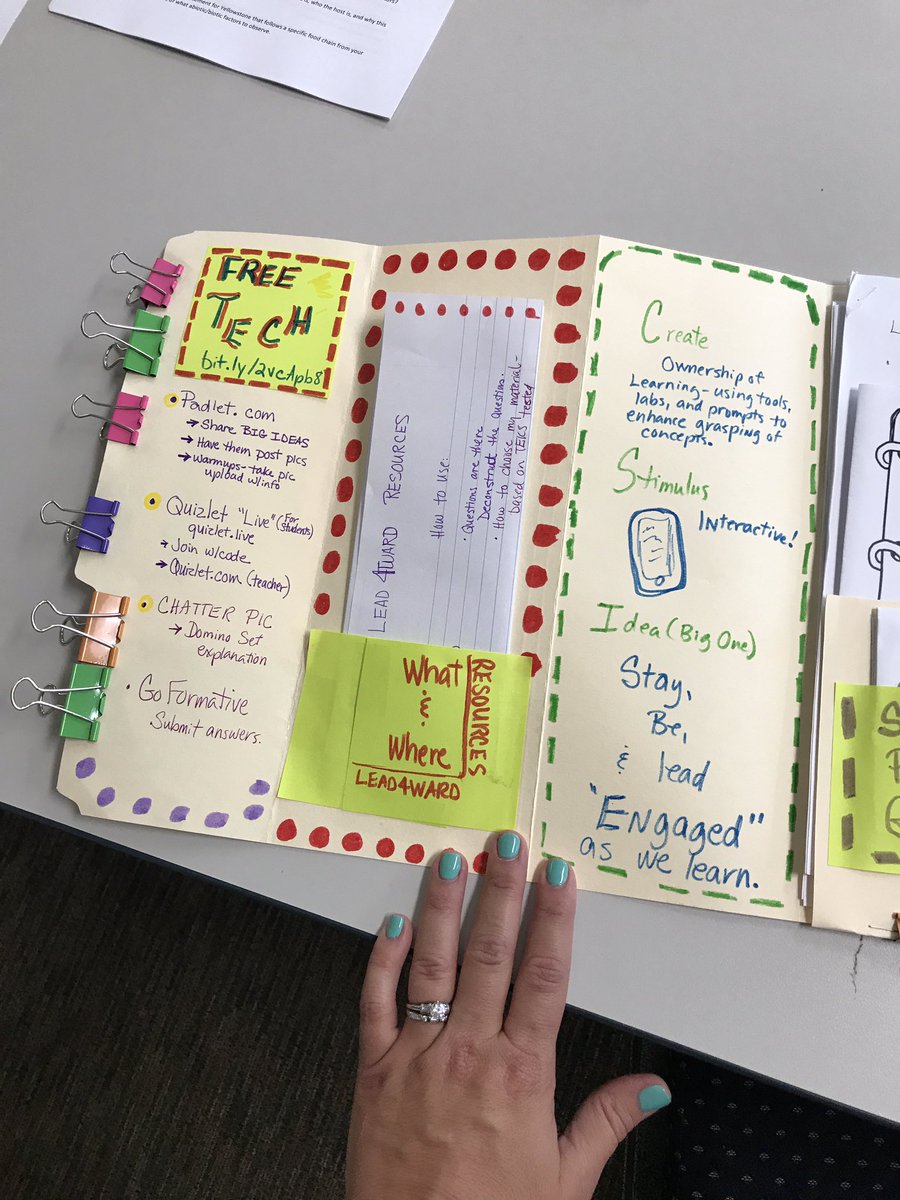 , who the host is, and why this
ment for Yellowstone that follows a specific food chain from your
of what abiotic/biotic factors to observe.
FREE
TECH
bit.ly/2vcApb8
Padlet.com
→ Share BIG IDEAS
→ Have them post pics
→ Warmups-take pic
upload w/info
Quizlet "Live" (For students)
quizlet.live
→ Join w/code
→ Quizlet.com (teacher)
CHATTER PIC
→ Domino Set
explanation
• Go Formative
Submit answers.
LEAD 4WARD RESOURCES
How to use:
• Questions are there
Deconstruct the Question.
• How to choose my material-
based on TEKS tested
What
&
Where
RESOURCES
LEAD4WARD
Create
Ownership of
Learning-using tools,
labs, and prompts to
enhance grasping of
concepts.
Stimulus
Interactive!
Idea (Big One)
Stay,
Be,
& lead
"Engaged"
as we learn.